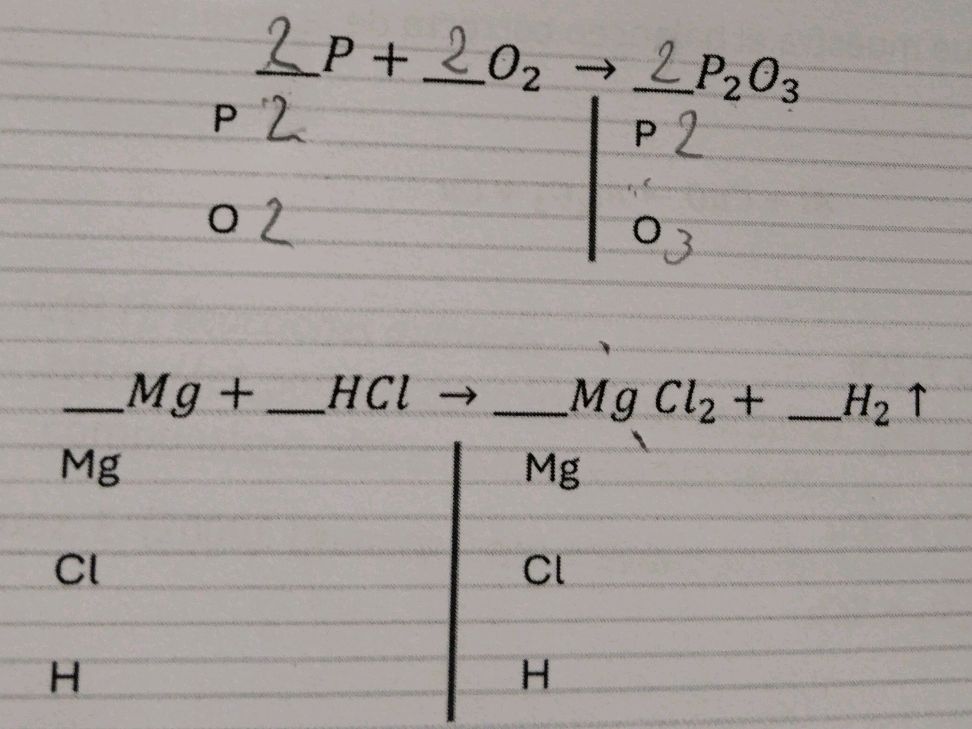 2 P + 2 O₂ → 2 P₂O₃
P 2 P 2
O 2 O 3
__Mg + __HCl → __Mg Cl₂ + __H₂ ↑
Mg Mg
Cl Cl
H H